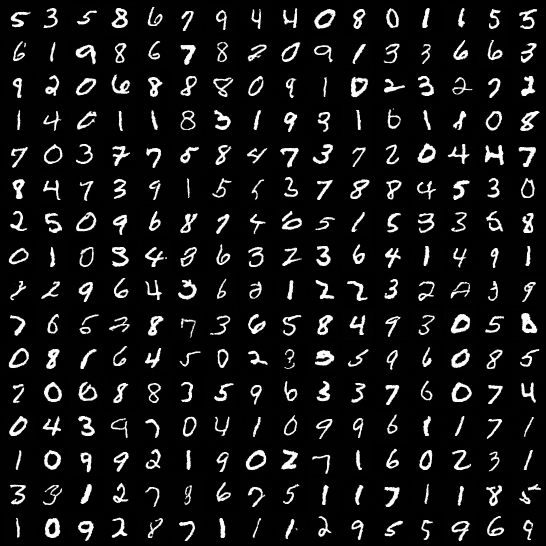 5 3 5 8 6 7 9 4 4 0 8 0 1 1 5 5
6 1 9 8 6 7 8 2 0 9 1 3 3 6 6 3
9 2 0 6 8 8 8 0 9 1 0 2 3 2 7 2
1 4 0 1 1 8 3 1 9 9 1 6 1 8 0 8
7 0 3 7 7 5 8 4 7 3 7 2 0 4 4 7
8 4 7 3 9 1 5 5 3 7 8 8 4 5 3 0
2 5 0 9 6 8 7 4 6 5 1 5 3 3 6 8
0 1 0 3 4 8 6 3 2 3 6 4 1 4 9 1
2 9 6 4 3 6 2 1 2 2 3 2 3 9
7 6 5 2 8 7 3 6 5 8 4 9 3 0 5 8
0 8 1 6 4 5 0 2 3 3 5 9 6 0 8 5
7 0 0 8 8 3 5 9 6 3 3 7 6 0 7 4
0 4 3 9 7 0 4 1 0 9 9 6 1 1 7 1
1 0 9 9 2 1 9 0 2 7 1 6 0 2 3 1
3 3 1 2 7 8 6 7 5 1 1 7 1 1 8 5
1 0 9 2 8 7 1 1 1 2 9 5 5 9 6 9